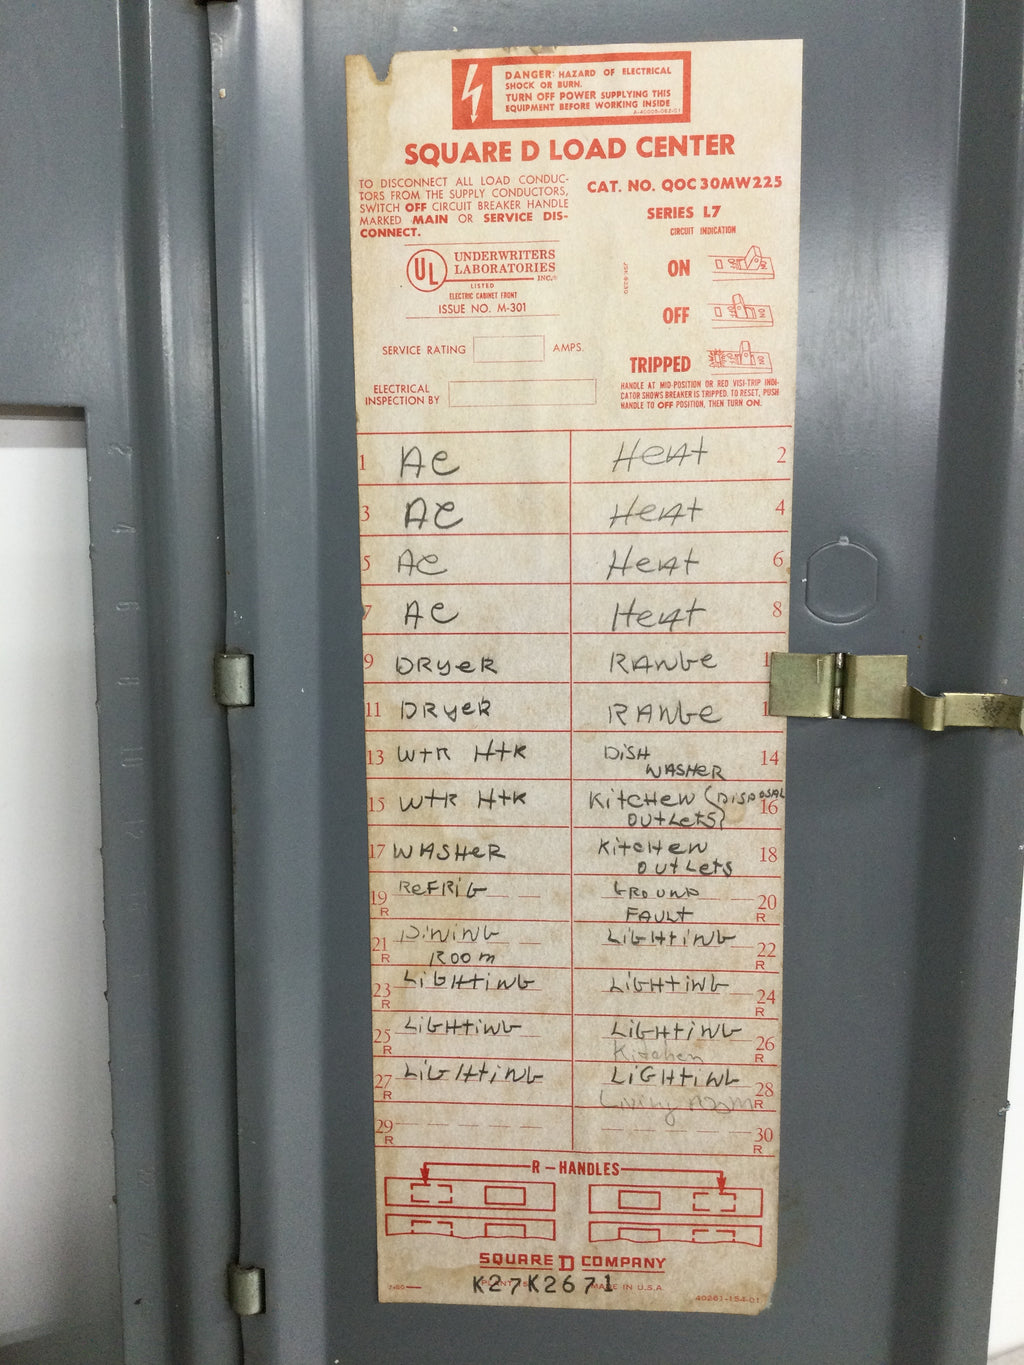 DANGER: HAZARD OF ELECTRICAL
SHOCK OR BURN.
TURN OFF POWER SUPPLYING THIS
EQUIPMENT BEFORE WORKING INSIDE
SQUARE D LOAD CENTER
TO DISCONNECT ALL LOAD CONDUC-
TORS FROM THE SUPPLY CONDUCTORS,
SWITCH OFF CIRCUIT BREAKER HANDLE
MARKED MAIN OR SERVICE DIS-
CONNECT.
CAT. NO. QOC30MW225
SERIES L7
CIRCUIT INDICATION
ON
OFF
TRIPPED
HANDLE AT MID-POSITION OR RED VISI-TRIP INDI-
CATOR SHOWS BREAKER IS TRIPPED. TO RESET, PUSH
HANDLE TO OFF POSITION, THEN TURN ON.
UL
UNDERWRITERS
LABORATORIES
INC.
LISTED
ELECTRIC CABINET FRONT
ISSUE NO. M-301
SERVICE RATING AMPS.
ELECTRICAL
INSPECTION BY
1 AC Heat 2
3 AC Heat 4
5 AC Heat 6
7 AC Heat 8
9 DRyeR RANGe 1
11 DRyeR RANGe 1
13 WtR HtR DiSH
WASHeR 14
15 WtR HtR KitCHeN (DISPOSAL
OUtLetS) 16
17 WASHeR KitCHeN
OUtLetS 18
19 R ReFRiG GROUND
FAULt 20 R
21 R DiNiNG
ROOm LiGHtiNG 22 R
23 R LiGHtiNG LiGHtiNG 24 R
25 R LiGHtiNG LiGHtiNG
Kitchen 26 R
27 R LiGHtiNG LiGHtiNG
Living room 28 R
29 R 30 R
R-HANDLES
SQUARE D COMPANY
K27K2671
MADE IN U.S.A.
40261-154-01
2
4
6
8
10
12